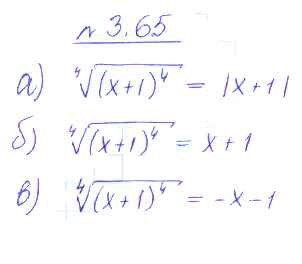 № 3.65
а) ⁴√(x+1)⁴ = |x+1|
б) ⁴√(x+1)⁴ = x+1
в) ⁴√(x+1)⁴ = -x-1